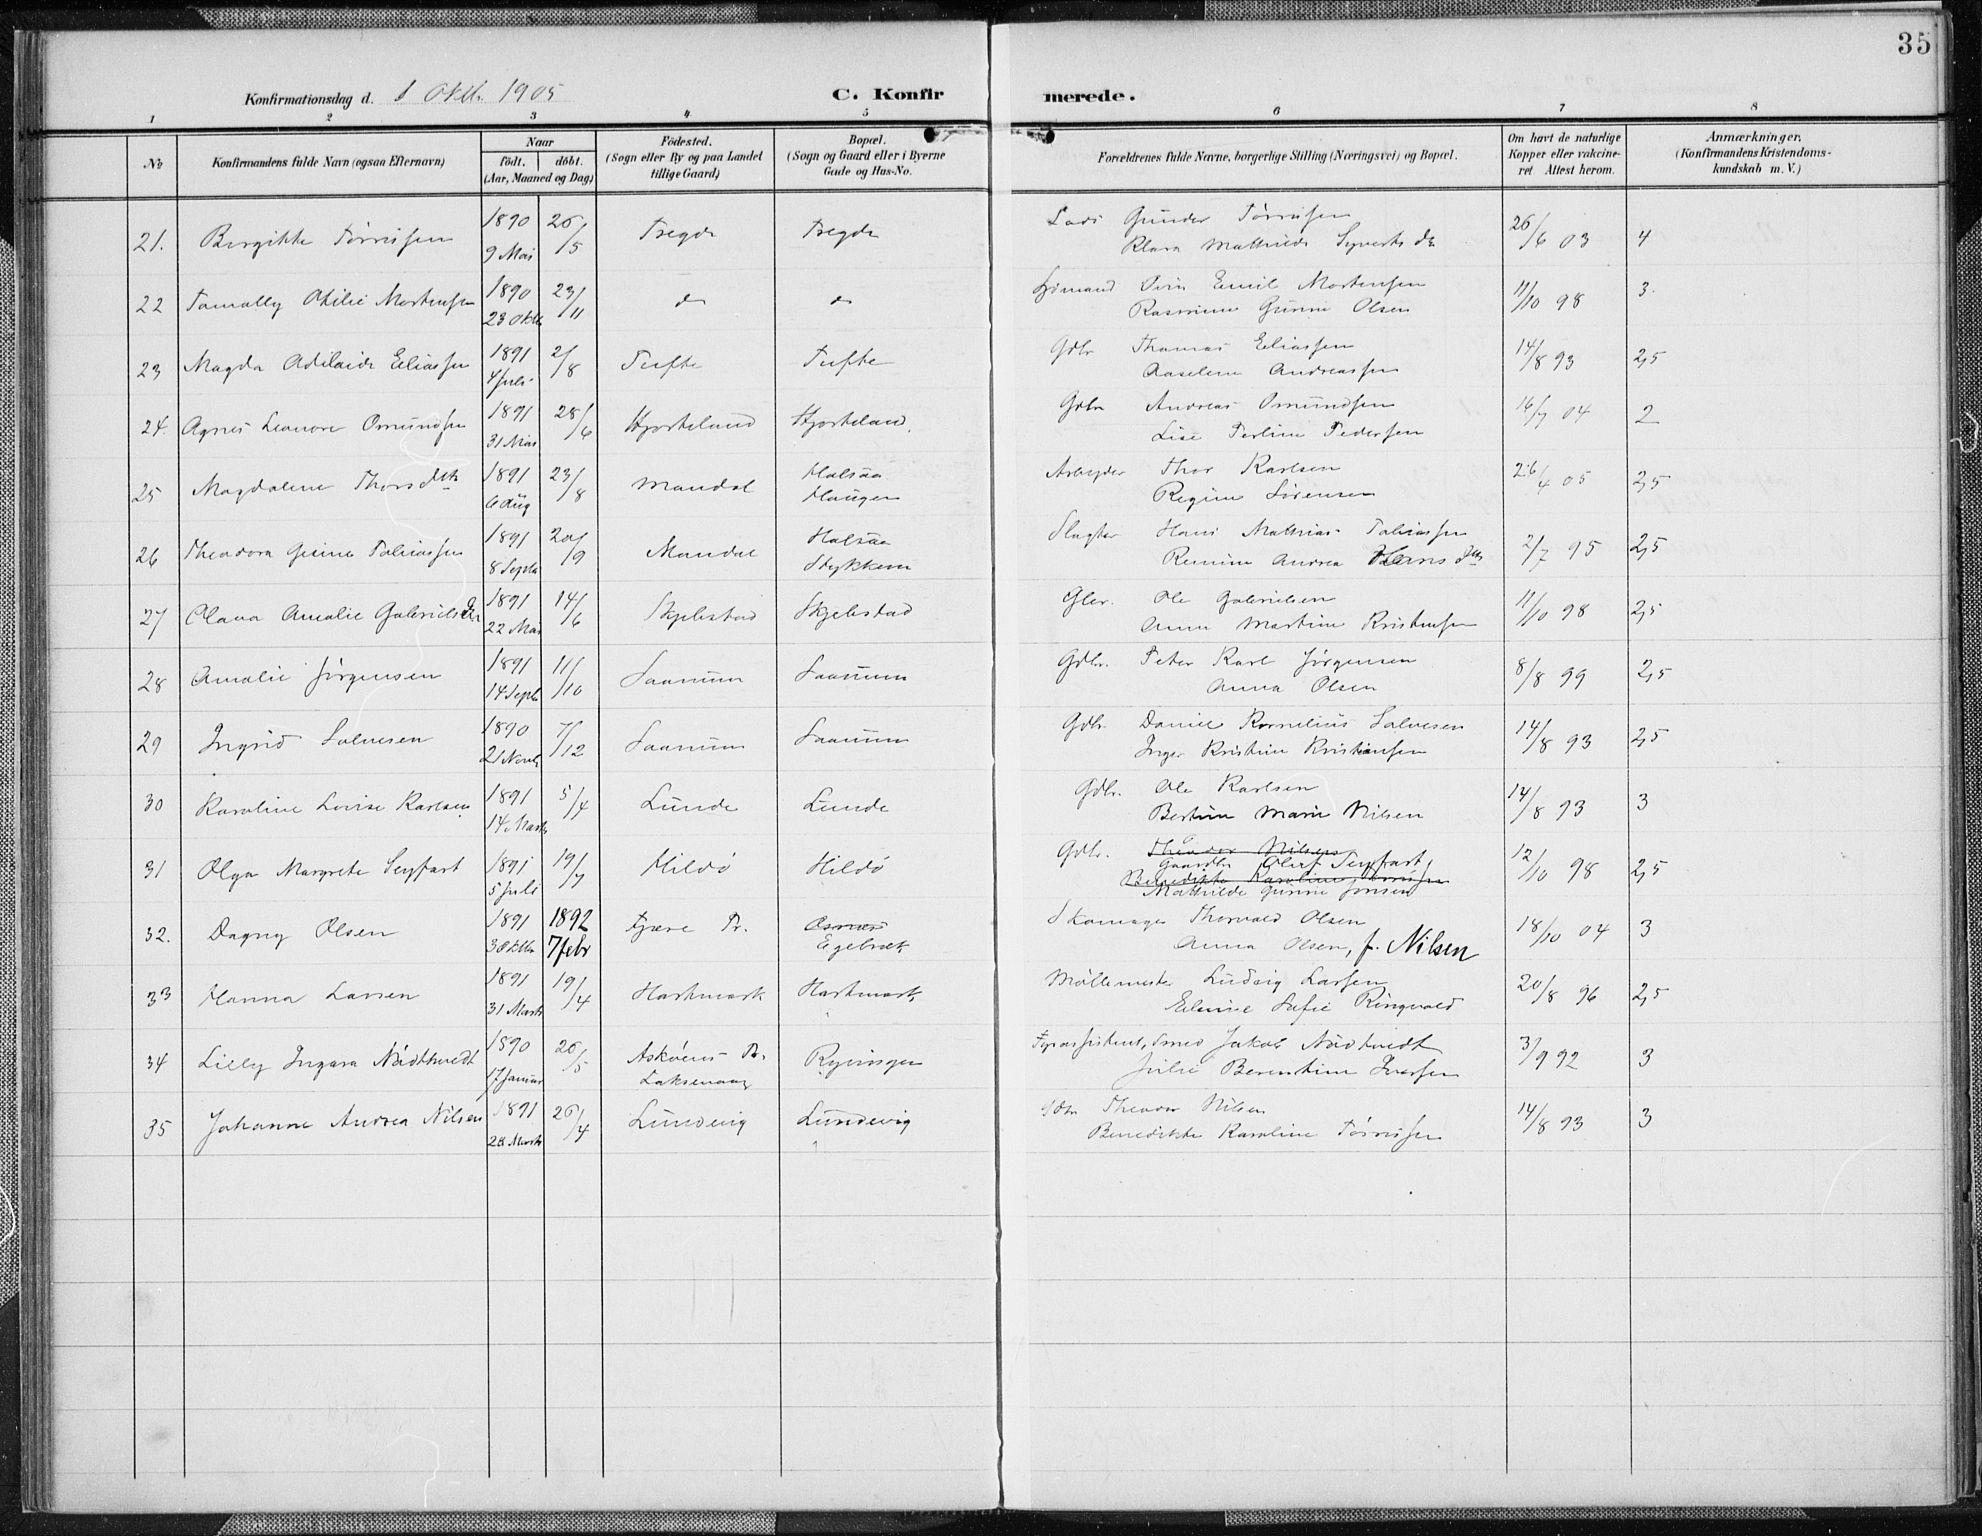 35
Konfirmationsdag d. 1 Oktb. 1905
C. Konfirmerede.
1 2 3 4 5 6 7 8
No
Konfirmandens fulde Navn (ogsaa Efternavn)
Naar
födt. döbt.
(Aar, Maaned og Dag)
Födested.
(Sogn eller By og paa Landet
tillige Gaard)
Bopæl.
(Sogn og Gaard eller i Byerne
Gade og Hus-No.
Forældrenes fulde Navne, borgerlige Stilling (Næringsvei) og Bopæl.
Om havt de naturlige
Kopper eller vakcine-
ret Attest herom.
Anmærkninger.
(Konfirmandens Kristendoms-
kundskab m. V.)
21. Bergitte Tørrisen 1890 9 Mai 26/5 Tregde Tregde Lods Gunder Tørrisen
Klara Mathilde Syverts dtr 26/6 03 4
22 Tomally Otilie Mortensen 1890 23 Oktb 23/11 do do Sømand Emil Mortensen
Rasmine Gurine Olsen 11/10 98 3
23 Magda Adelaide Eliassen 1891 4 Juli 2/8 Tufte Tufte Gdbr Thomas Eliassen
Aaselene Andreassen 14/8 93 2,5
24. Agnes Leonore Omundsen 1891 31 Mai 28/6 Hjorteland Hjorteland Gdbr Andreas Omundsen
Lise Terline Pedersen 16/7 04 2
25 Magdalene Thorsdtr 1891 6 Aug 23/8 Mandal Halsaa Haugen Arbeyder Thor Karlsen
Regine Sørensen 26/4 05 2,5
26 Theodora Gusine Tobiassen 1891 8 Septb 20/9 Mandal Halsaa Stykkene Slagter Hans Mathias Tobiassen
Remine Andrea Hans dtr 2/7 95 2,5
27 Olava Amalie Gabrielsdtr 1891 22 Mai 14/6 Skjebstad Skjebstad Gbr. Ole Gabrielsen
Anna Martine Kristensen 11/10 98 2,5
28 Amalie Jørgensen 1891 14 Septb 11/10 Saanum Saanum Gdbr. Peter Karl Jørgensen
Anna Olsen 8/8 99 2,5
29 Ingrid Salvesen 1890 21 Novb 7/12 Saanum Saanum Gdbr. Daniel Kornelius Salvesen
Inger Kristine Kristiansen 14/8 93 2,5
30 Karoline Lovise Karlsen 1891 14. Marts 5/4 Lunde Lunde Gdbr. Ole Karlsen
Bertine Marie Nilsen 14/8 93 3
31 Olga Margrete Seyfart 1891 5 Juli 19/7 Hildø Hildø Gdbr. Theodor Nilsen
Gaardbr Oluf Seyfart
Benedikte Karoline Tørrisen
Mathilde Gurine Jonsen 12/10 98 2,5
32. Dagny Olsen 1891 3 Oktbr 1892 7 febr Fjære Pr. Osnæs Egebæk Skomager Thorvald Olsen
Anna Olsen, f. Nilsen 18/10 04 3
33 Hanna Larsen 1891 31 Marts 19/4 Hartmark Hartmark Møllemester Ludvig Larsen
Elenise Sofie Ringvold 20/8 96 2,5
34 Lilly Ingara Nødtvedt 1890 17 Januar 26/5 Askøens Pr. Laksevaag Ryvingen Fyrassistent, Smed Jakob Nødtvedt
Julie Berentine Iversen 3/9 92 3
35 Johanne Andrea Nilsen 1891 28 Marts 26/4 Lundevig Lundevig Gdbr Theodor Nilsen
Benedikte Karoline Tørrisen 14/8 93 3